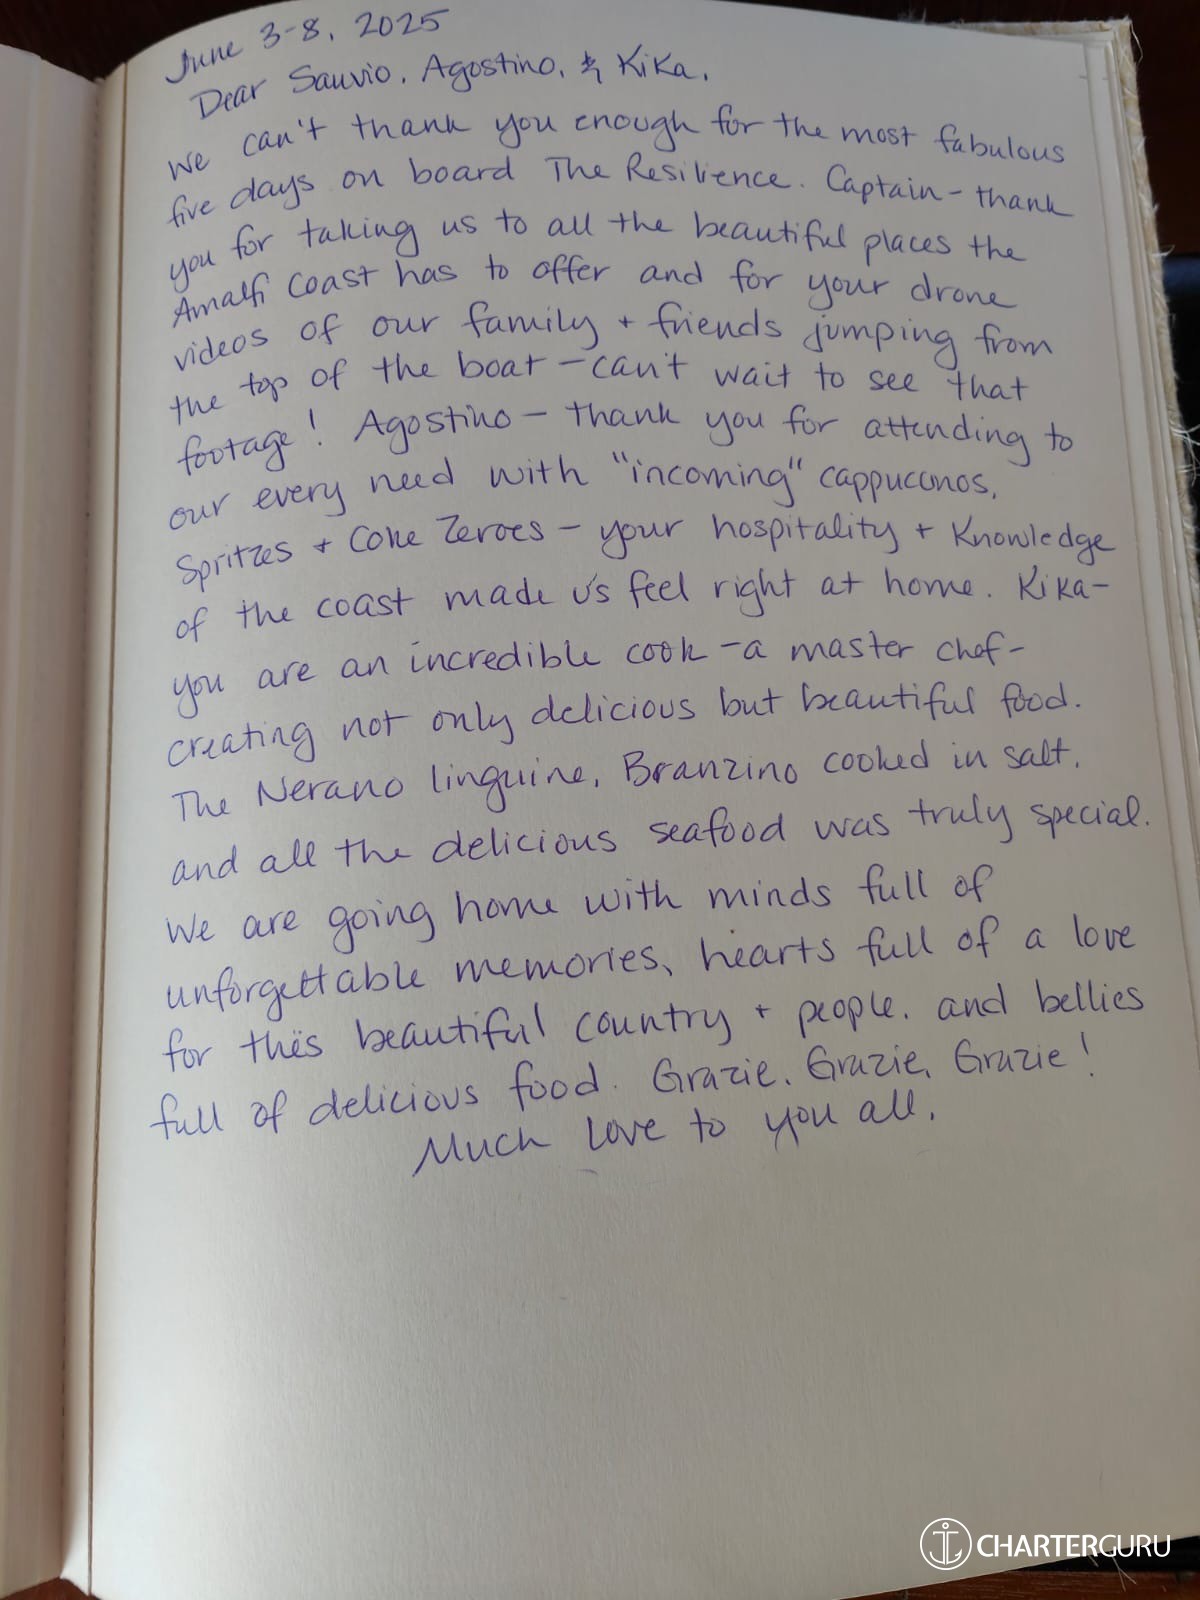 June 3-8, 2025
Dear Sauvio, Agostino, & Kika,
We can't thank you enough for the most fabulous
five days on board The Resilience. Captain - thank
you for taking us to all the beautiful places the
Amalfi Coast has to offer and for your drone
videos of our family + friends jumping from
the top of the boat - can't wait to see that
footage! Agostino - thank you for attending to
our every need with "incoming" cappuconos,
Spritzes + Coke Zeroes - your hospitality + Knowledge
of the coast made us feel right at home. Kika-
you are an incredible cook - a master chef-
creating not only delicious but beautiful food.
The Nerano linguine, Branzino cooked in salt,
and all the delicious seafood was truly special.
We are going home with minds full of
unforgettable memories, hearts full of a love
for this beautiful country + people, and bellies
full of delicious food. Grazie, Grazie, Grazie!
Much love to you all,
CHARTERGURU